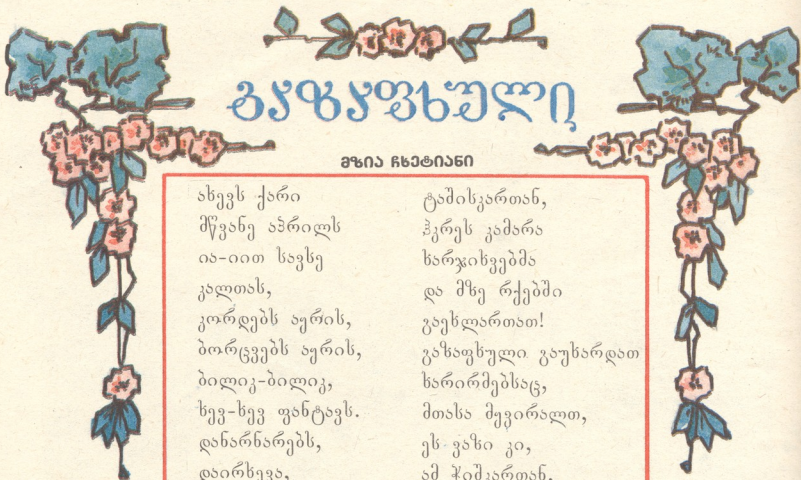 გაზაფხული
მზია ჩხეტიანი
ახევს ქარი
მწვანე აპრილს
ია-იით სავსე
კალთას,
კორდებს აყრის,
ბორცვებს აყრის,
ბილიკ-ბილიკ,
ხევ-ხევ ფანტავს.
დანარნარებს,
დაირხევა,
ტაშისკართან,
ჰკრეს კამარა
ხარჯიხვებმა
და მზე რქებში
გაეხლართათ!
გაზაფხული გაუხარდათ
ხარირმებსაც,
მთასა მეყირალთ,
ეს ვაზი კი,
ამ ჭიშკართან,